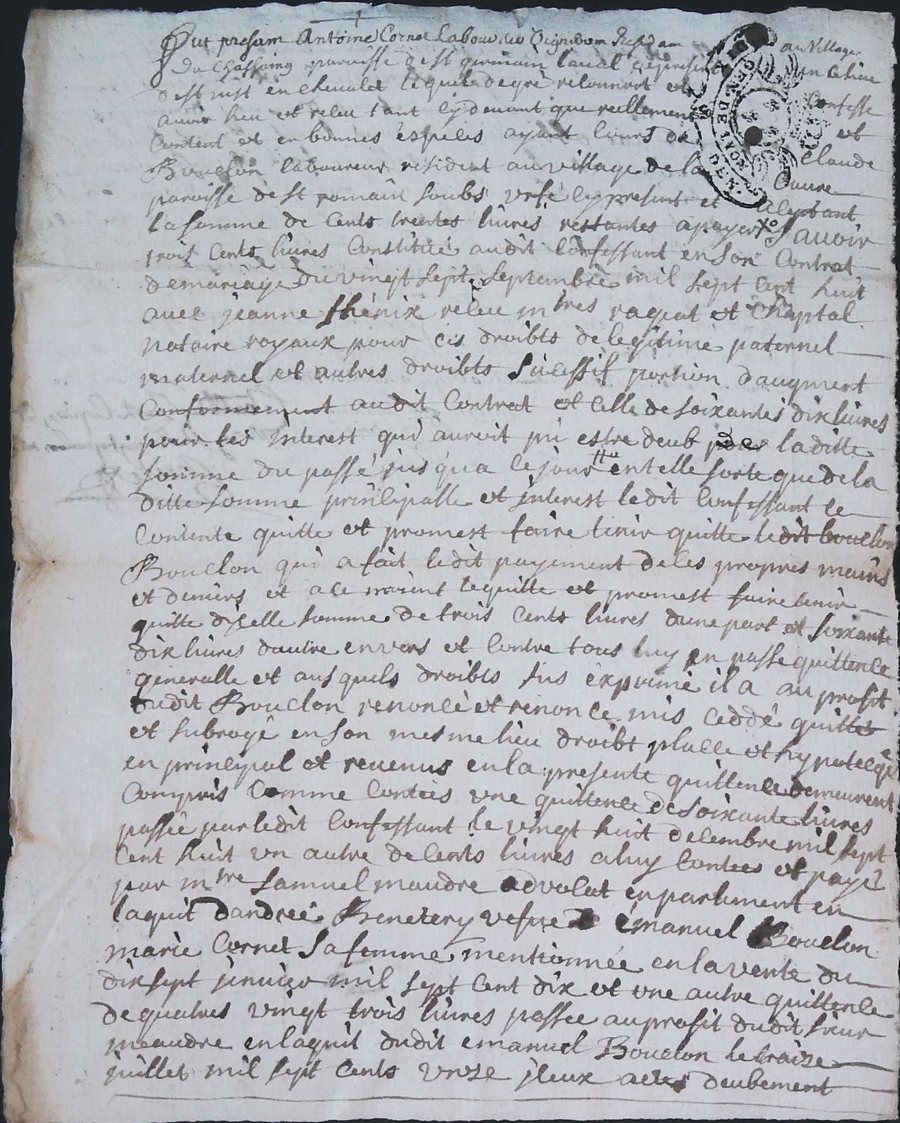 Fut presant Antoine Cornet Laboureur
au Village
Du Chassaing paroisse de st germain laval
de st just en chevalet lequel de gré
Confesse
avoir heu et releu tant cy devant que reellement
Content et en bonnes espeles ayant Cours de et
Bouclon laboureur résident au village de la Claude
paroisse de st romain soubs urfé cy present et aleptant
la somme de Cents trentes livres restantes a payer savoir
trois Cents livres Constitué audit Confessant en son Contrat
de mariage Du vingt sept septembre mil sept Cent huit
avec jeanne thénix releu mtres raguat et Chaptal
notaire royaux pour cis droibts de legitime paternel
maternel et autres droibts sucessif portion daugment
Conformement audit Contrat et Celle de soixantes dix livres
pour les interest qui auroit pu estre deub de la ditte
somme du passé jusqua le jour entelle sorte que de la
ditte somme prinlipalle et interest ledit Confessant le
Contente quitte et promest faire tenir quitte ledit bouclon
Bouclon qui a fait ledit payement de les propres mains
et deniers et a le moient le quitte et promest faire tenir
quitte dicelle somme de trois Cents livres dune part et soixante
dix livres dautre envers et Contre tous luy en passe quittence
generalle et ausquels droibts sus exprimé il a au profit
dudit Bouclon renoncé et renonce mis Ceddé quitté
et subrogé en son mesme lieu droibt plalle et hypoteque
en principal et revenus en la presente quittence demeurent
Compris Comme Contées une quittence de soixante livres
passée par ledit Confessant le vingt huit delembre mil sept
Cent huit un autre de Cents livres a luy Contées et payé
par mtre samuel maudre advolat en parlement en
laquit dandreé Benetery vefue emanuel Bouclon
marie Cornet sa femme mentionnée en la vente du
dix sept jenvier mil sept Cent dix et une autre quittence
de quatres vingt trois livres passée au profit dudit sieur
meaudre en laquit dudit emanuel Bouclon le traize
juillet mil sept Cents unze yleux actes deubement